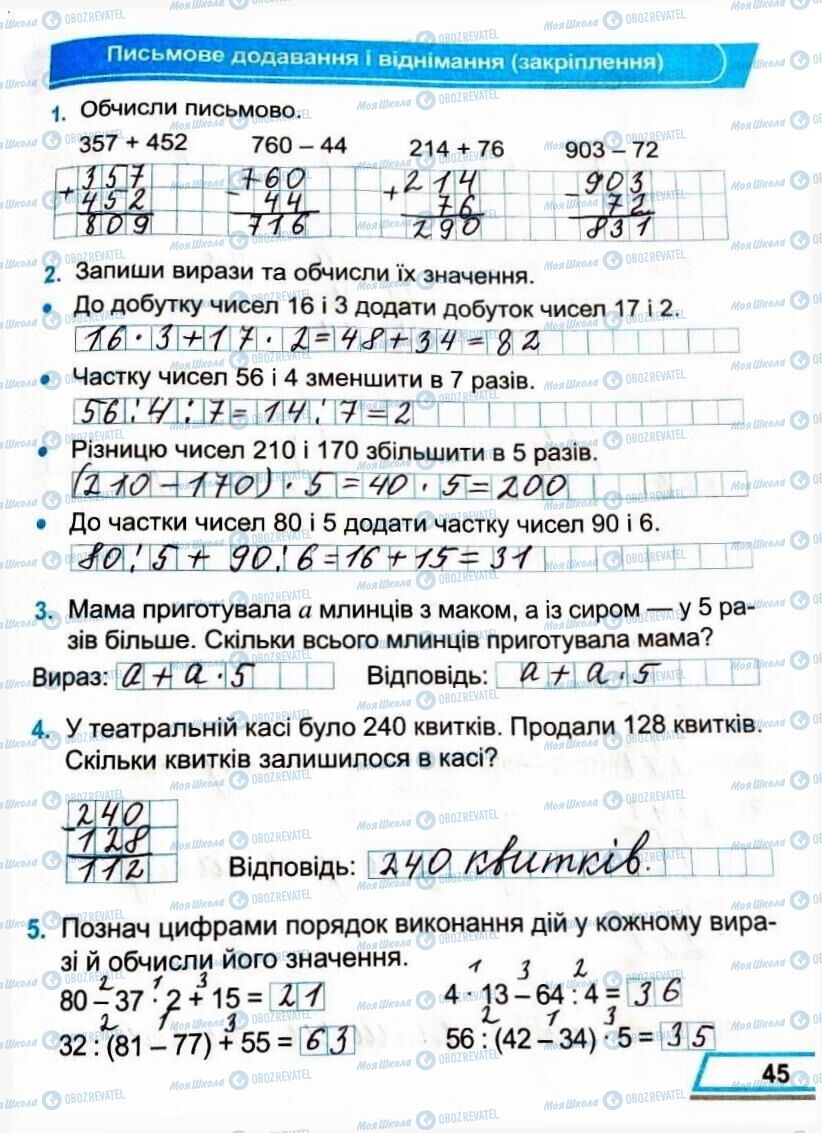 Письмове додавання і віднімання (закріплення)
1. Обчисли письмово.
357 + 452 760 – 44 214 + 76 903 – 72
+357 –760 +214 –903
452 44 76 72
809 716 290 831
2. Запиши вирази та обчисли їх значення.
• До добутку чисел 16 і 3 додати добуток чисел 17 і 2.
16 · 3 + 17 · 2 = 48 + 34 = 82
• Частку чисел 56 і 4 зменшити в 7 разів.
56 : 4 : 7 = 14 : 7 = 2
• Різницю чисел 210 і 170 збільшити в 5 разів.
(210 – 170) · 5 = 40 · 5 = 200
• До частки чисел 80 і 5 додати частку чисел 90 і 6.
80 : 5 + 90 : 6 = 16 + 15 = 31
3. Мама приготувала а млинців з маком, а із сиром — у 5 ра-
зів більше. Скільки всього млинців приготувала мама?
Вираз: а + а · 5 Відповідь: а + а · 5
4. У театральній касі було 240 квитків. Продали 128 квитків.
Скільки квитків залишилося в касі?
–240
128
112 Відповідь: 240 квитків.
5. Познач цифрами порядок виконання дій у кожному вира-
зі й обчисли його значення.
2 1 3 1 3 2
80 – 37 · 2 + 15 = 21 4 · 13 – 64 : 4 = 36
2 1 3 2 1 3
32 : (81 – 77) + 55 = 63 56 : (42 – 34) · 5 = 35
45
МояШкола OBOZREVATEL